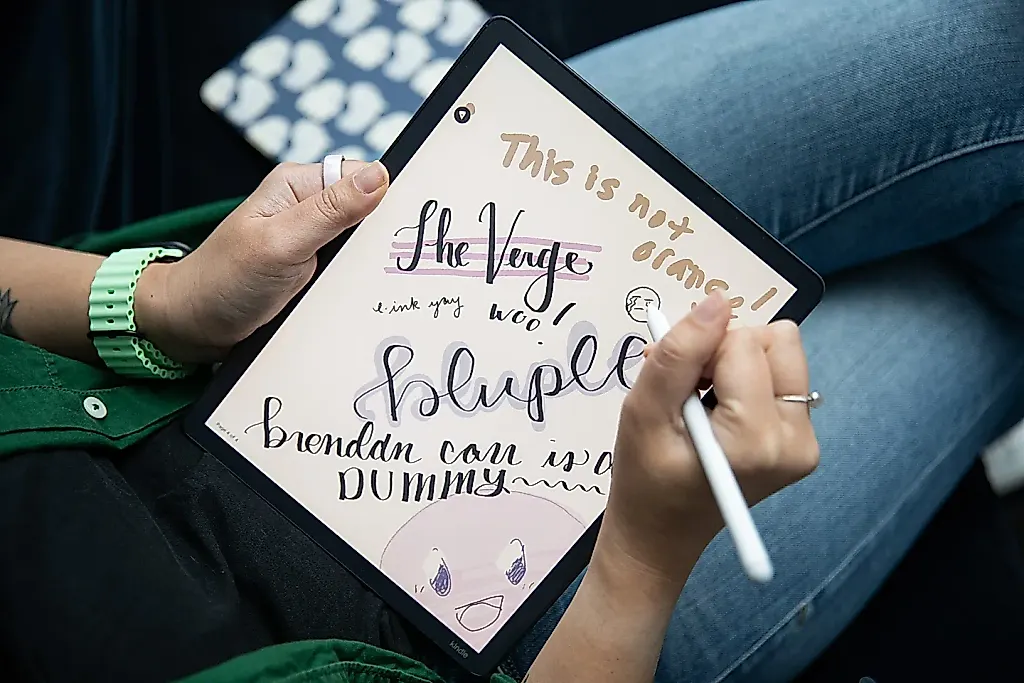 This is not
orange!
The Verge
e-ink yay woo!
brendan carr is a
DUMMY
kindle